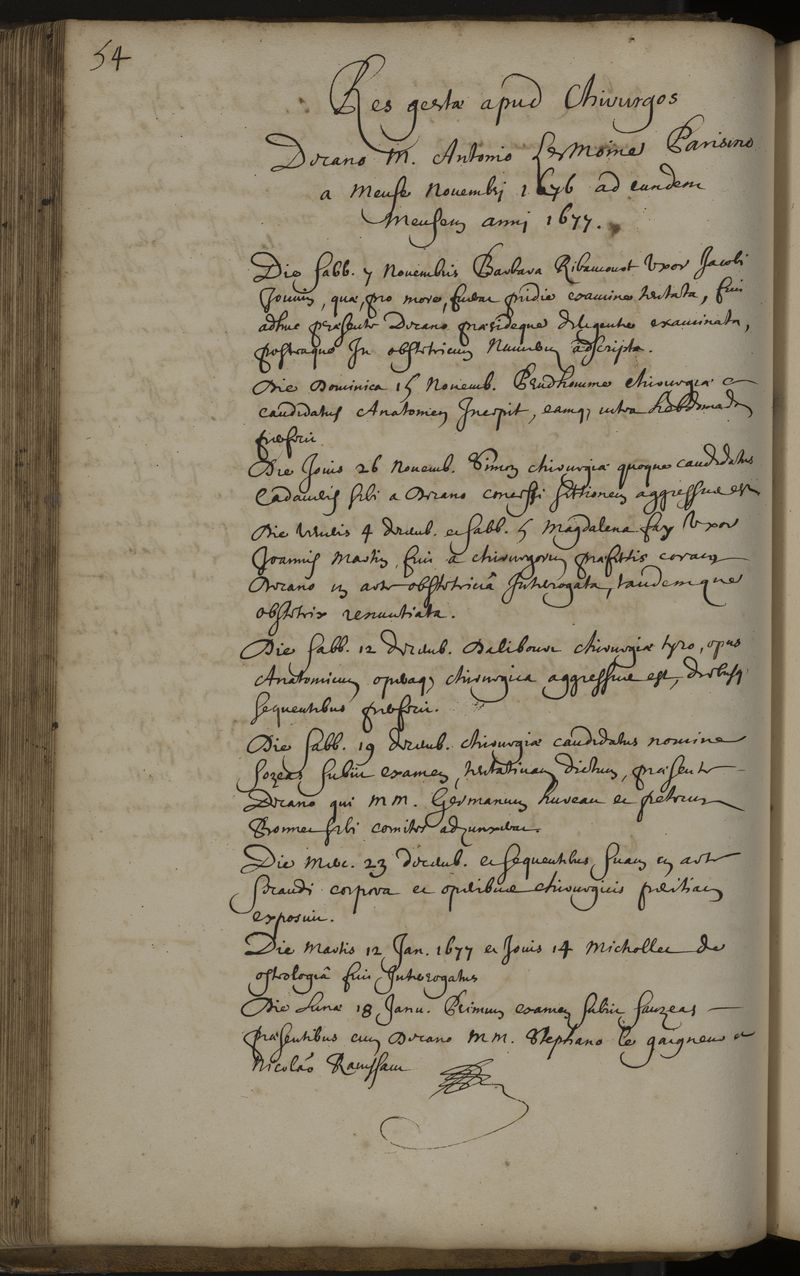 54
Res gestæ apud Chirurgos
Decano M. Antonio Le Moine Parisino
a Mense Novembrj 1676 ad eundem
Mensem annj 1677.
Die Sabb. 7 Novembris Barbara Ribaucourt Uxor Jacobi
Jouvin, quæ, pro more, fuerat pridie examine tentata, fuit
adhuc præsente Decano præsideque diligenter examinata,
posteaque In obstetricum Numerum adscripta.
Die Dominica 15 Novemb. Prudhomme chirurgiæ
candidatus Anatomen Incepit, eamq; intra hebdomadam
perfecit.
Die Jovis 26 Novemb. Simon chirurgiæ quoque candidatus
Cadaveris sibi a Decano concessi sectionem aggressus est
Die Veneris 4 decemb. et Sabb. 5 Magdalena fay Uxor
Joannis Martin, fuit a chirurgorum præfectis coram
Decano in arte obstetriciâ Interrogata, tandemque
obstetrix renuntiata.
Die Sabb. 12 decemb. Dalibour chirurgiæ tyro, opus
Anatomicum operaq; chirurgica aggressus est, diebusq;
sequentibus perfecit.
Die Sabb. 19 decemb. chirurgiæ candidatus nomine
Sozeas subiit examen, tentativam dictum, præsente
Decano qui MM. Germanum hureau et petrum
sibi comites adjunxerat.
Die Merc. 23 decemb. et sequentibus suam in arte
secandi corpora et operibus chirurgicis peritiam
exposuit.
Die Martis 12 Jan. 1677 et Jovis 14 Michollet de
osteologiâ fuit Interrogatus
Die Lunæ 18 Janu. Primum examen subiit Sauzeas
præsentibus cum Decano MM. Stephano le gaigneur et
Nicolâo